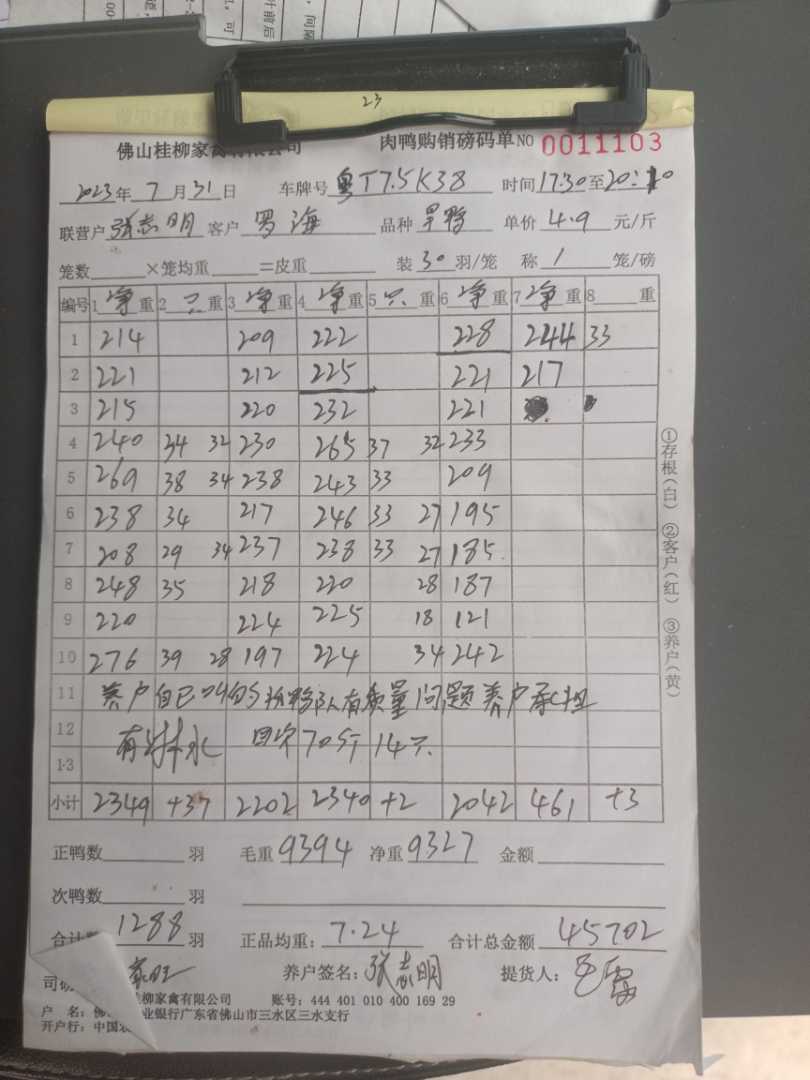 23
佛山桂柳家禽有限公司 肉鸭购销磅码单 NO 0011103
2023年7月31日 车牌号 粤T7.5K38 时间17:30至20:10
联营户 张志明 客户 罗海 品种 旱鸭 单价 4.9 元/斤
笼数 ×笼均重 =皮重 装30羽/笼 称1笼/磅
编号 1净重 2只重 3净重 4净重 5只重 6净重 7净重 8重
1 214 209 222 228 244 33
2 221 212 225 221 217
3 215 220 232 221
4 240 34 32 230 265 37 32 233
5 269 38 34 238 243 33 209
6 238 34 217 246 33 27 195
7 208 29 34 237 238 33 27 185
8 248 35 218 220 28 187
9 220 224 225 18 121
10 276 39 28 197 224 34 242
11 养户自己叫的 鸭队有质量问题养户承担
12 有 水 回次70斤14只
13
小计 2349 +37 2202 2340 +2 2042 461 +3
正鸭数 羽 毛重 9394 净重 9327 金额
次鸭数 羽
合计 1288 羽 正品均重: 7.24 合计总金额 45702
司磅 养户签名: 张志明 提货人:
桂柳家禽有限公司 账号: 444 401 010 400 169 29
户 名: 佛 业银行广东省佛山市三水区三水支行
开户行: 中国农
①存根(白) ②客户(红) ③养户(黄)